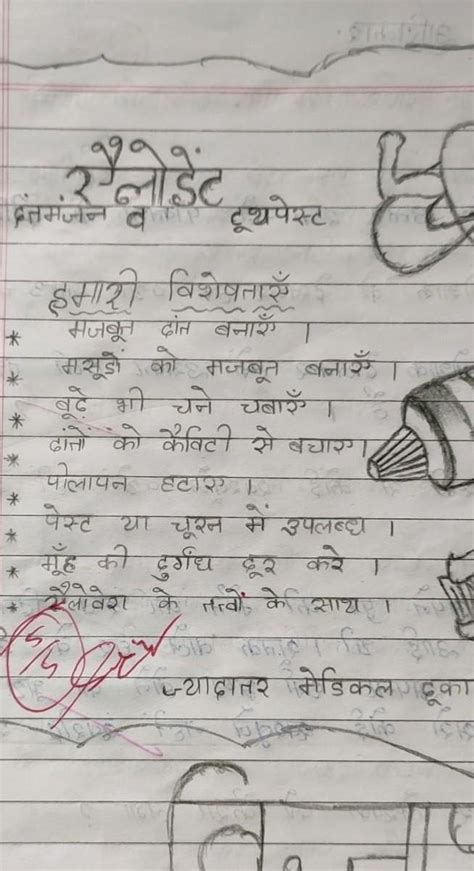 एैलोडेंट
दंतमंजन व टूथपेस्ट
हमारी विशेषताएँ
* मजबूत दांत बनाएँ ।
* मसूडों को मजबूत बनाएँ ।
* बूढ़े भी चने चबाएँ ।
* दांतो को कैविटी से बचाए।
* पीलापन हटाए ।
* पेस्ट या चूरन में उपलब्ध ।
* मूँह की दुर्गंध दूर करे ।
* एैलोवेरा के तत्वों के साथ ।
5/5
ज्यादातर मेडिकल दूका